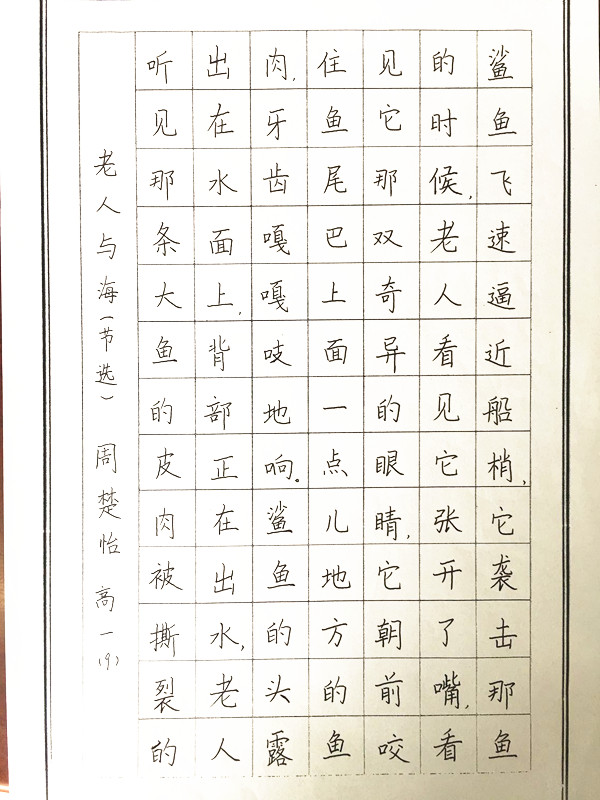 鲨鱼飞速逼近船梢,它袭击那鱼
的时候,老人看见它张开了嘴,看
见它那双奇异的眼睛,它朝前咬
住鱼尾巴上面一点儿地方的鱼
肉,牙齿嘎嘎吱地响。鲨鱼的头露
出在水面上,背部正在出水,老人
听见那条大鱼的皮肉被撕裂的
老人与海(节选) 周楚怡 高一(9)